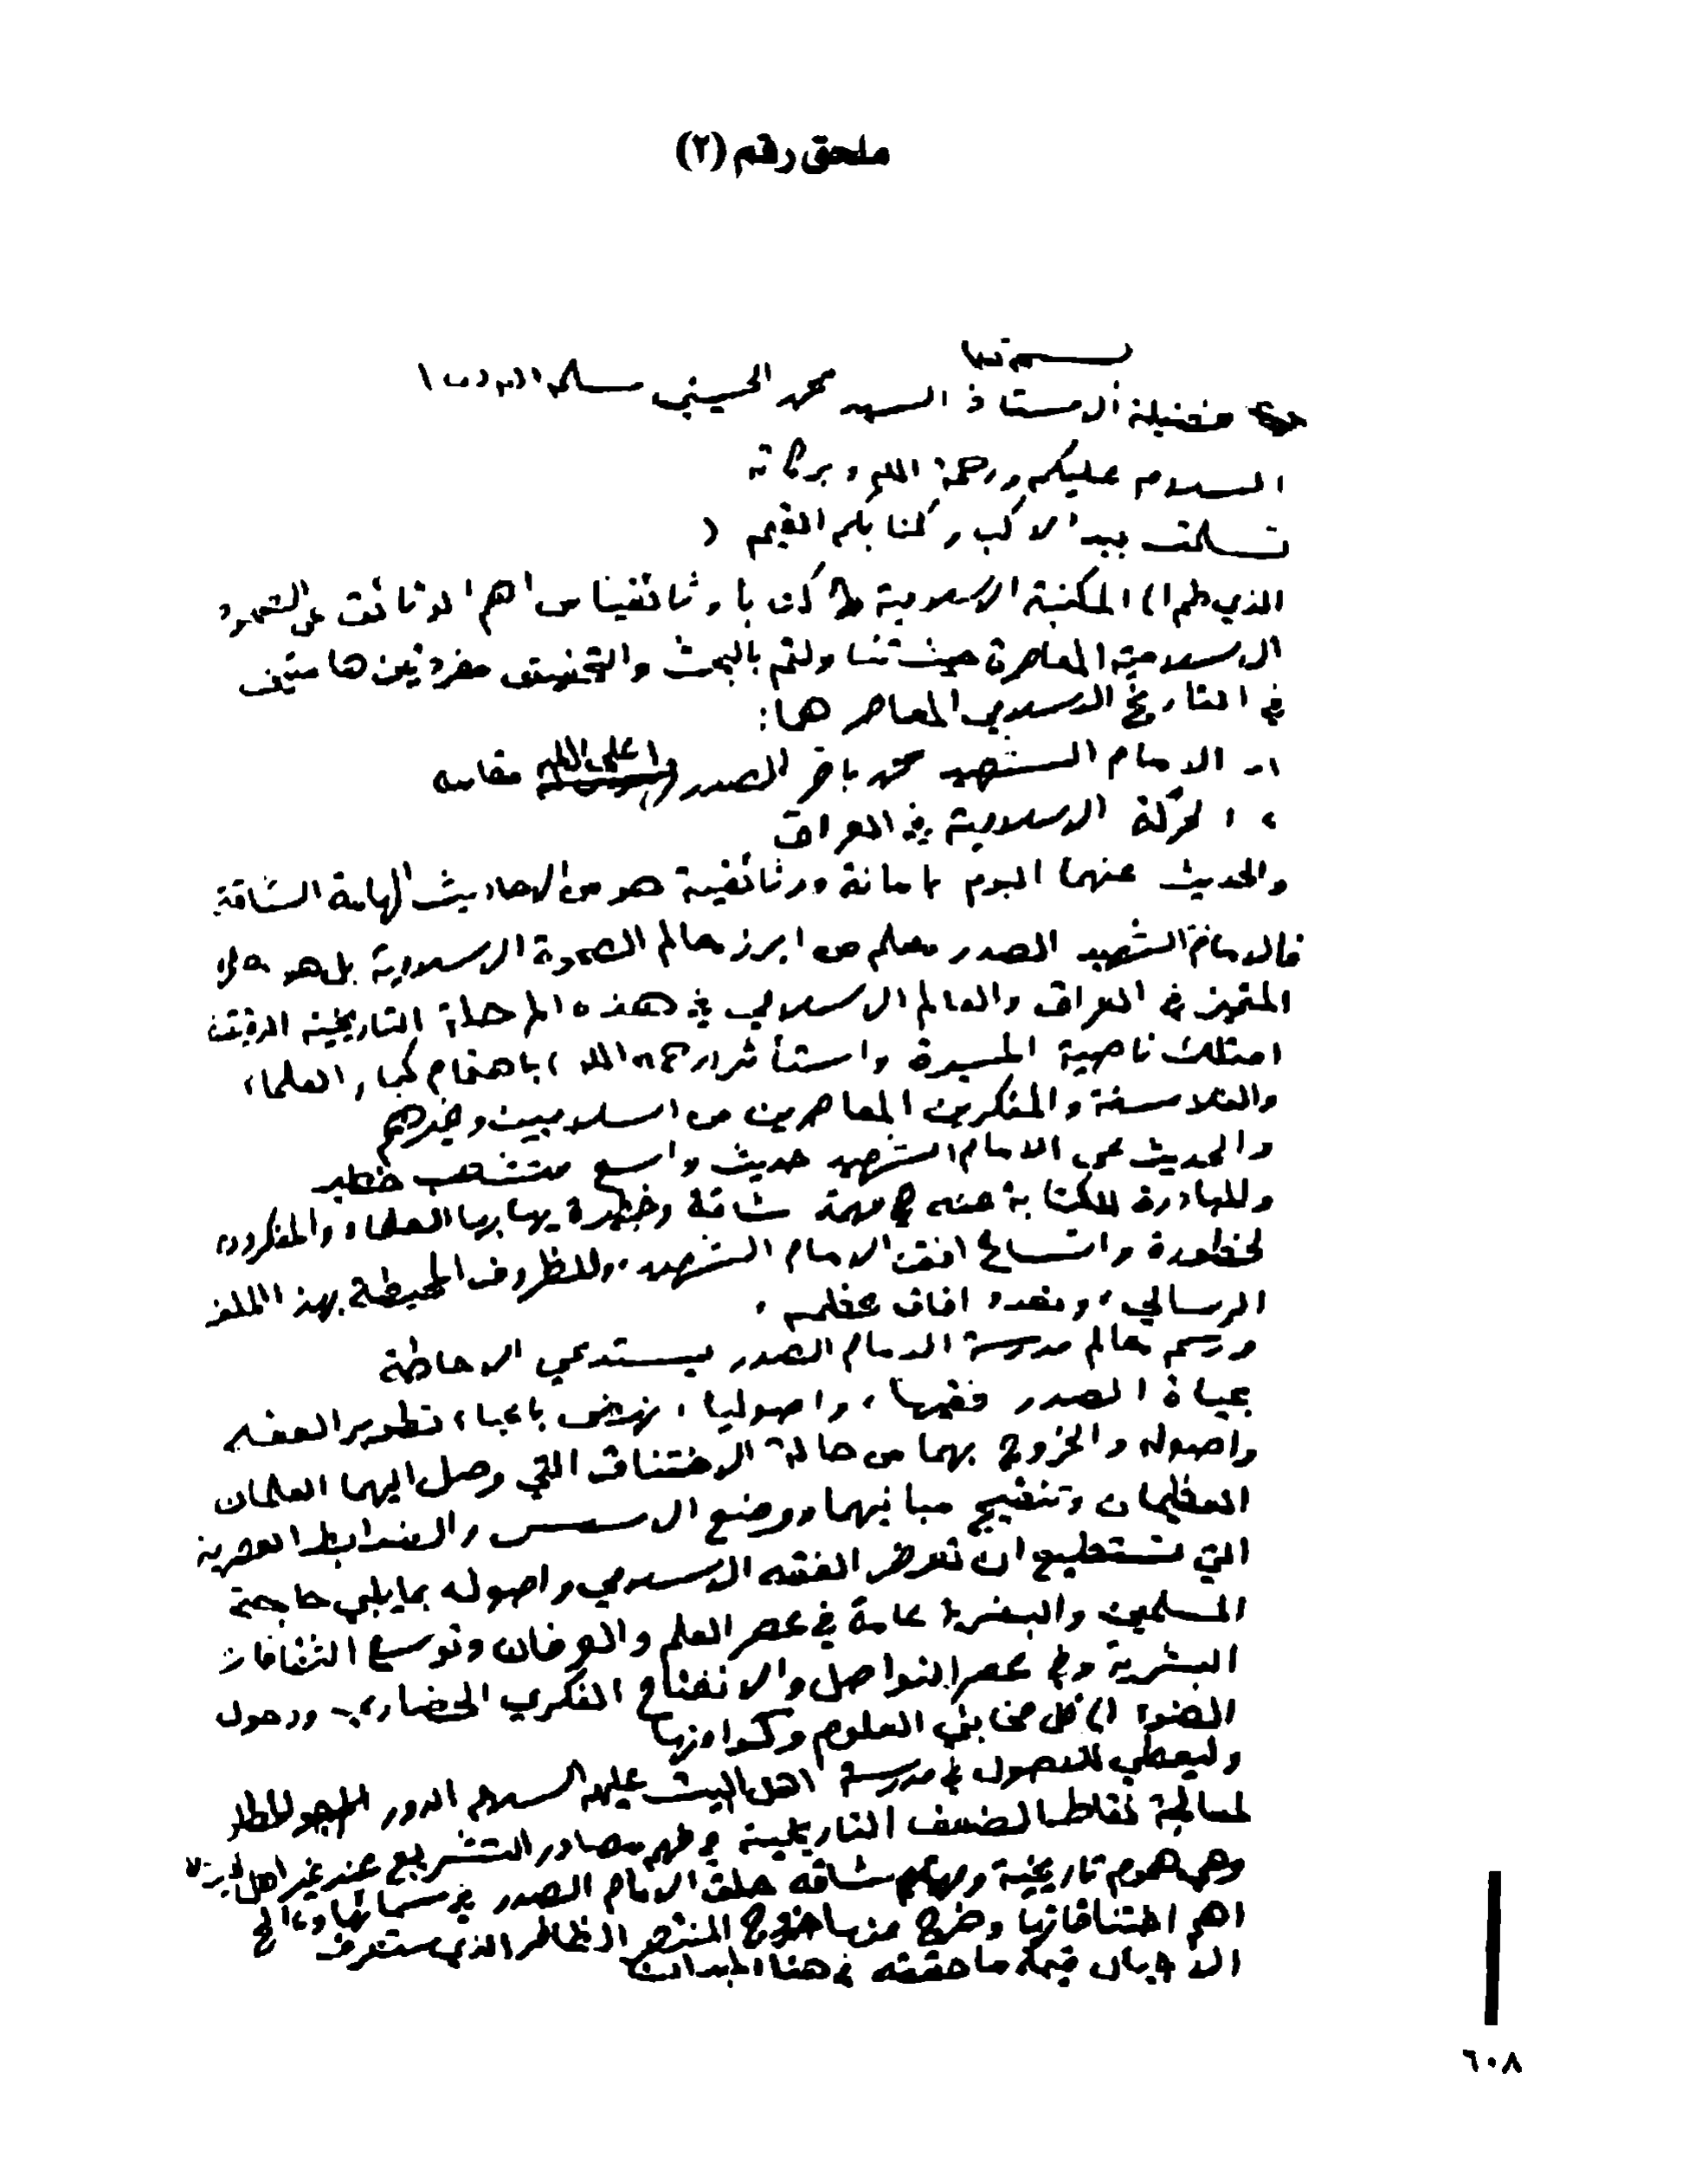 ملحق رقم (٢)
بسمه تعا
فضيلة الاستاذ السيد محمد الحسيني سلمه الله
السلام عليكم ورحمة الله وبركاته
تسلمت بيد الاكبار كتابكم القيم
الذي المكتبة الاسلامية كتابا وثائقيا من اهم الوثائق
الاسلامية المعاصرة حيث تناولتم بالبحث والتحقيق مفردتين هامتين
في التاريخ الاسلامي المعاصر هما:
١- الامام الشهيد محمد باقر الصدر اعلى الله مقامه
الحركة الاسلامية في العراق
والحديث عنهما اليوم بامانة ووثائقية هو من الاحاديث الهامة الشاقة
فالامام الشهيد الصدر معلم من ابرز معالم الصحوة الاسلامية بل هو
المتميز في العراق والعالم الاسلامي في هذه المرحلة التاريخية الدقيقة
امتلك ناصية المسيرة واستأثر (رحمه الله) باهتمام كبار العلماء
والفلاسفة والمفكرين المعاصرين من اسلاميين وغيرهم
والحديث عن الامام الشهيد حديث واسع متشعب خطير
وللمبادرة للكتابة عنه مهمة شاقة وخطيرة يهابها العلماء والمفكرون
لخطورة واتساع افق الامام الشهيد، وللظروف المحيطة بهذا الملف
الرسالي، وتعدد افاق عظمه.
ورسم معالم مدرسة الامام الصدر يستدعي الاحاطة
بحياة الصدر فقيها، واصوليا، نهض باعباء تطوير الفقه
واصوله والخروج بهما من حالة الاختناق التي وصل اليهما العلمان
العظيمان وتنقيح مبانيهما ووضع الاسس والضوابط العصرية
التي تستطيع ان تعرض الفقه الاسلامي واصوله بما يلبي حاجة
المسلمين والبشرية عامة في عصر العلم والعرفان وتوسيع الثقافات
البشرية وفي عصر التواصل والانفتاح الفكري الحضاري ودخول
الضوء الى كل العلوم
وليعطي للاصول في مدرسة اهل البيت عليهم السلام الدور
لمعالجة نقاط الضعف التاريخية وفهم مصادر التشريع عند غير اهل
وهي هموم تاريخية ومهام شاقه حلق الامام الصدر في سمائها
اهم اختناقاتها وخرج منها خروج المنتصر الظافر الذي ستعرف
الاجيال قيمة ما حققه في هذا الميدان
٦٠٨